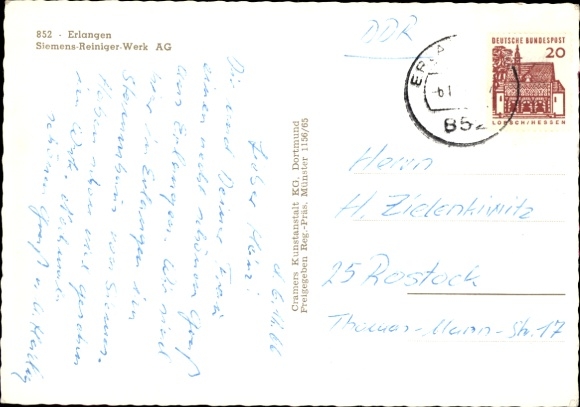 852 - Erlangen
Siemens-Reiniger-Werk AG
DDR
DEUTSCHE BUNDESPOST
20
LORSCH/HESSEN
852
Herrn
H. Zielenkiwitz
25 Rostock
Thomas-Mann-Str. 17
Cramers Kunstanstalt KG. Dortmund
Freigegeben Reg.-Präs. Münster 1156/65
d. 6.11.66
Lieber Heinz!
Dir und Deiner Frau
einen recht schönen Gruß
aus Erlangen. Wir sind
hier in Erlangen im
Stammhaus von Siemens.
Haben schon viel gesehen
schönen Gruß